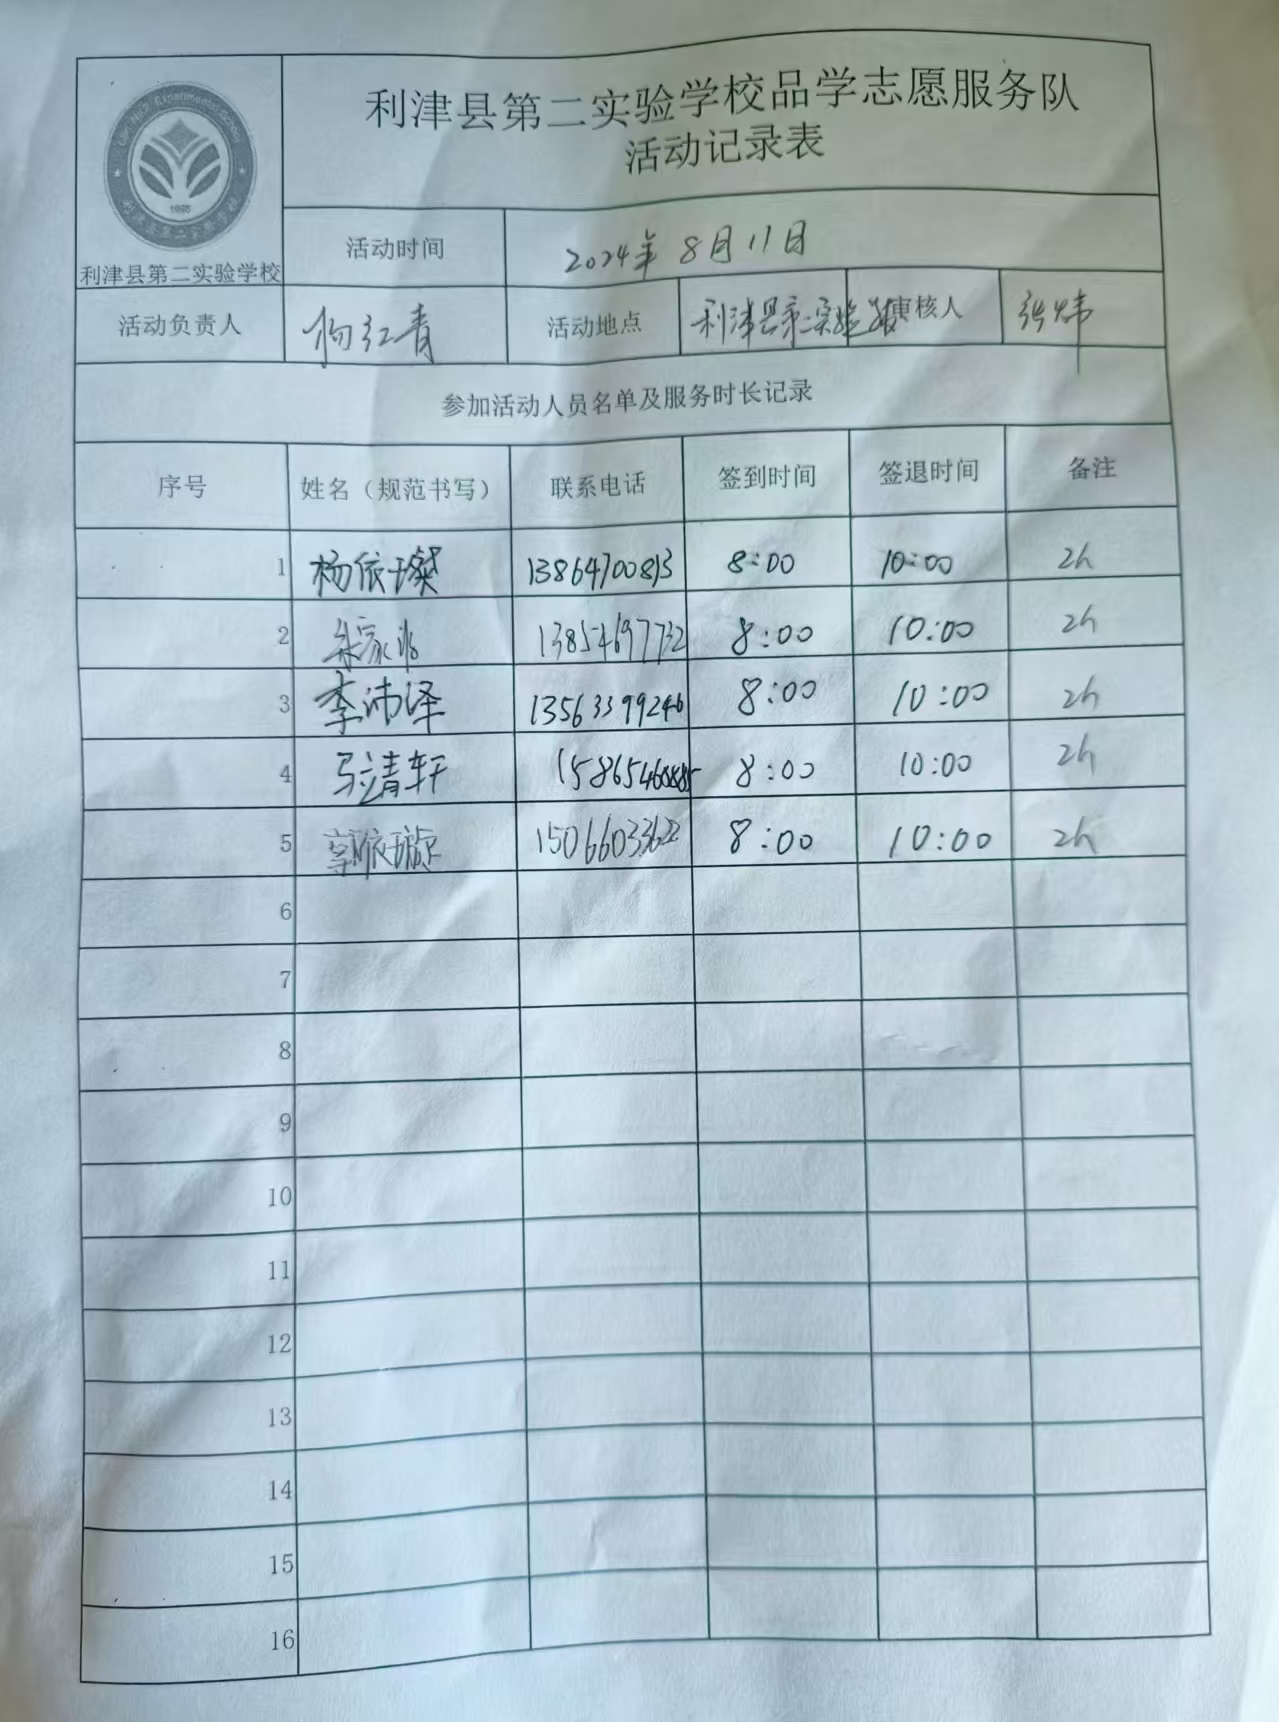 利津县第二实验学校品学志愿服务队
活动记录表
1995
利津县第二实验学校
活动时间 2024年8月11日
活动负责人 杨红青 活动地点 利津县第二实验学校 审核人 张炜
参加活动人员名单及服务时长记录
序号 姓名（规范书写） 联系电话 签到时间 签退时间 备注
1 杨依璨 13864700813 8:00 10:00 2h
2 13854697732 8:00 10:00 2h
3 李沛泽 13563399246 8:00 10:00 2h
4 马靖轩 8:00 10:00 2h
5 郭依璇 15066033622 8:00 10:00 2h
6
7
8
9
10
11
12
13
14
15
16